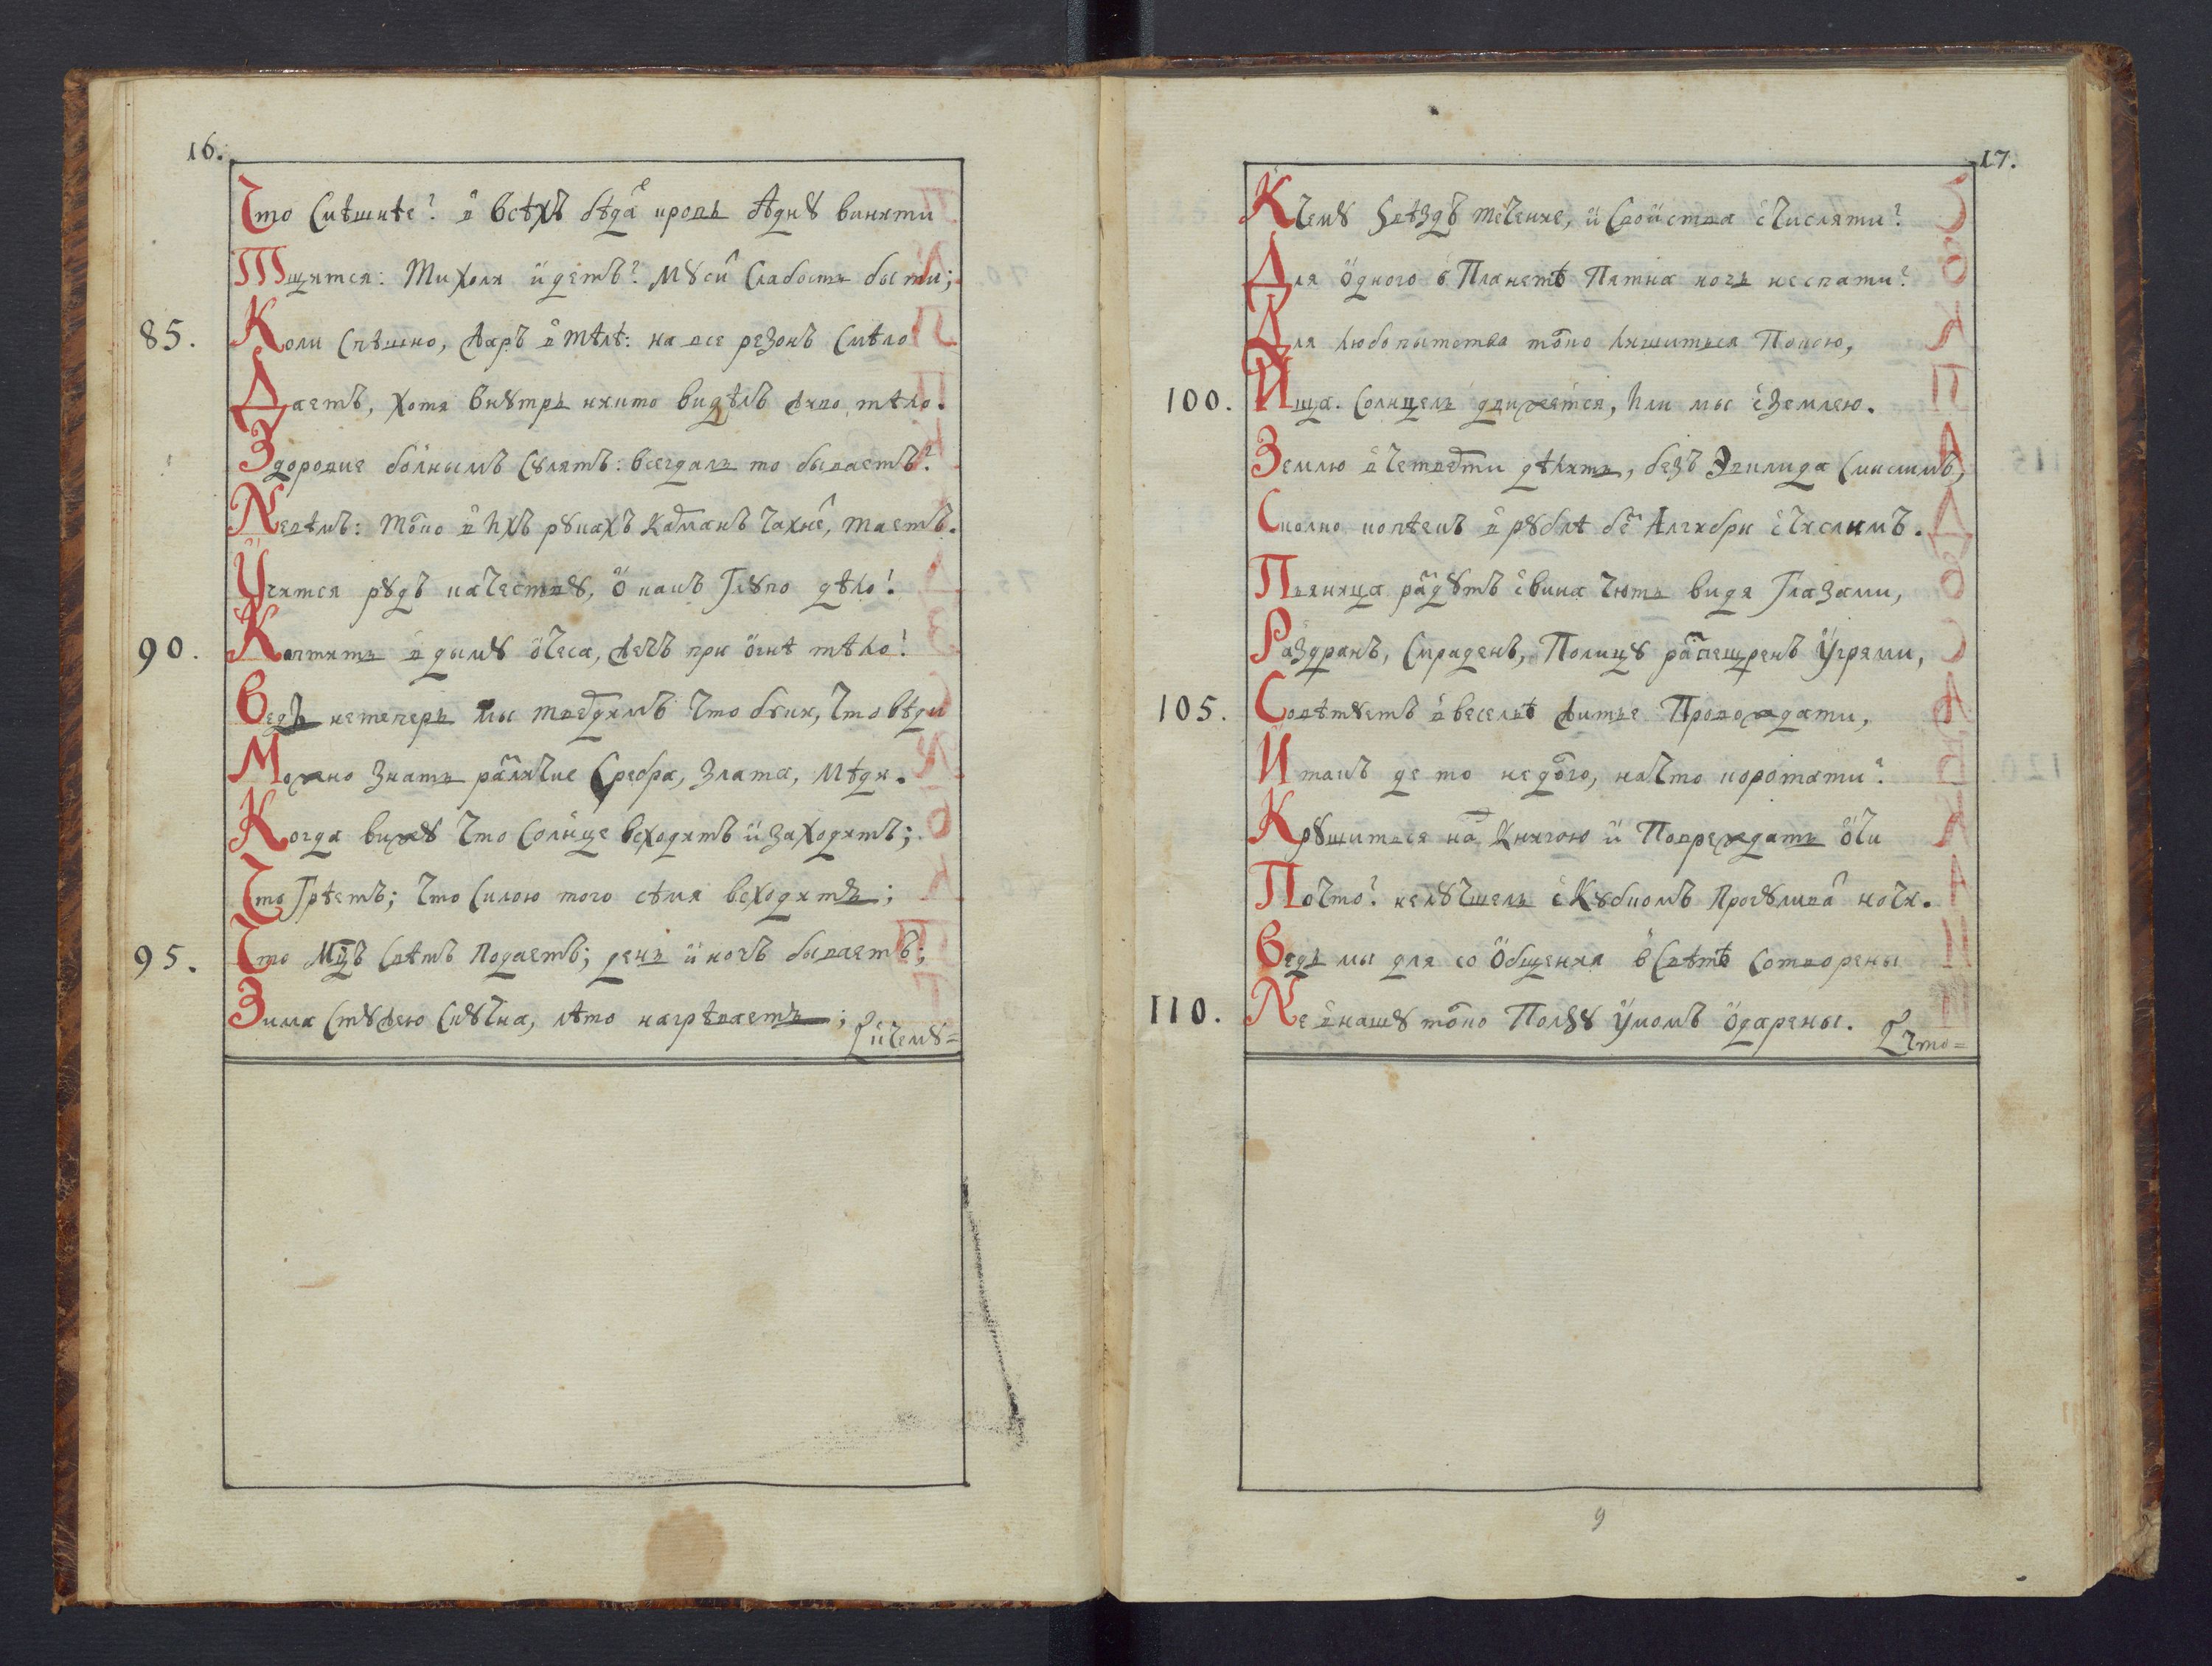 16.
Что смѣшнѣе? в̾ всѣхъ бѣдаⷯ кровь однꙋ винити
Тщятся: Тихоля идетъ? мꙋси слабость быти;
85. Коли спѣшно, жаръ в̾ тѣлѣ: на все резонъ смѣло
Даетъ, хотя внꙋтрь никто видѣлъ живо тѣло.
Здоровие болнымъ сꙋлятъ: всегдаль то бываетъ?
Невѣмъ: Тоⷧко в̾ ихъ рꙋкахъ каⷬманъ чахнеⷮ, таетъ.
Учится рꙋдъ качествꙋ, о какъ глꙋпо дѣло!
90. Коптить в̾ дымꙋ очеса, жечъ при огнѣ тѣло!
Ведь нетеперь мы твеⷬдимъ что бꙋки, что вѣди
Можно знать раⷥличие сребра, злата, мѣди.
Когда вижꙋ что солнце всходитъ и заходитъ;
Что грѣетъ; что силою того сѣмя всходитъ;
95. Что мцъ свѣтъ подаетъ; день и ночъ бываетъ;
Зима стꙋжею скꙋчна, лѣто нагрѣваетъ;
и чемꙋ=
17.
К̾ чемꙋ ѕвѣздъ течение, и свойства счислити?
Для одного в̾ Планетѣ Пятна ночь неспати?
Для любопытства тоⷧко лишиться Покою,
100. Ища. Солнцель движется, или мы с̾ землею.
Землю в̾ четвеⷬти дѣлить, безъ Эвклида смыслимъ,
Сколко копѣекъ в̾ рꙋблѣ беⷥ Алгебри счислимъ.
Пьяница раⷣдꙋтъ с̾ вина чють видя глазами,
Раздранъ, смраденъ, Полицꙋ раⷭпещренъ Угрями,
105. Совѣтꙋетъ в̾ весельѣ житье Провождати,
И такъ де то недоⷧго, на что коротати?
Крꙋшиться наⷣ книгою и Повреждать очи
Почто? не лꙋчшель с̾ кꙋбкомъ Прогꙋливаⷮ ночи.
Ведь мы для сообщения в̾ свѣтѣ сотворены
110. Не в̾ нашꙋ тоⷧко Полꙁꙋ Умомъ одарены.
что=
9